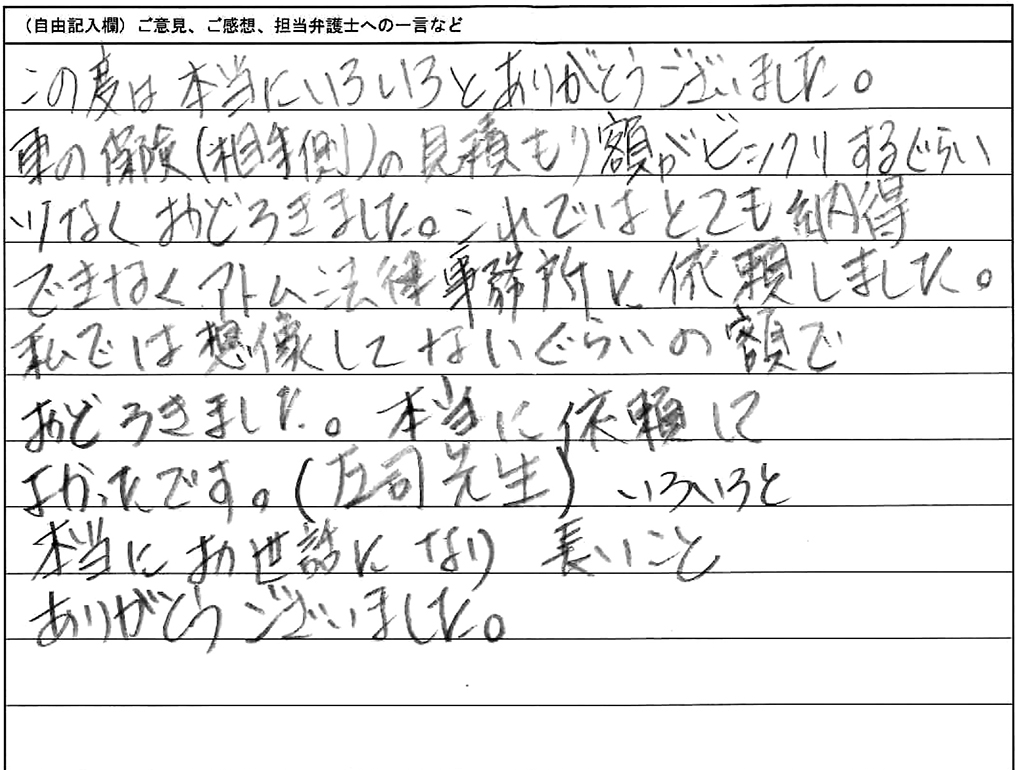 （自由記入欄）ご意見、ご感想、担当弁護士への一言など
この度は本当にいろいろとありがとうございました。
車の保険(相手側)の見積もり額がビックリするぐらい
少なくおどろきました。これではとても納得
できなくアトム法律事務所に依頼しました。
私では想像してないぐらいの額で
おどろきました。本当に依頼して
よかったです。(庄司先生)いろいろと
本当にお世話になり 長いこと
ありがとうございました。